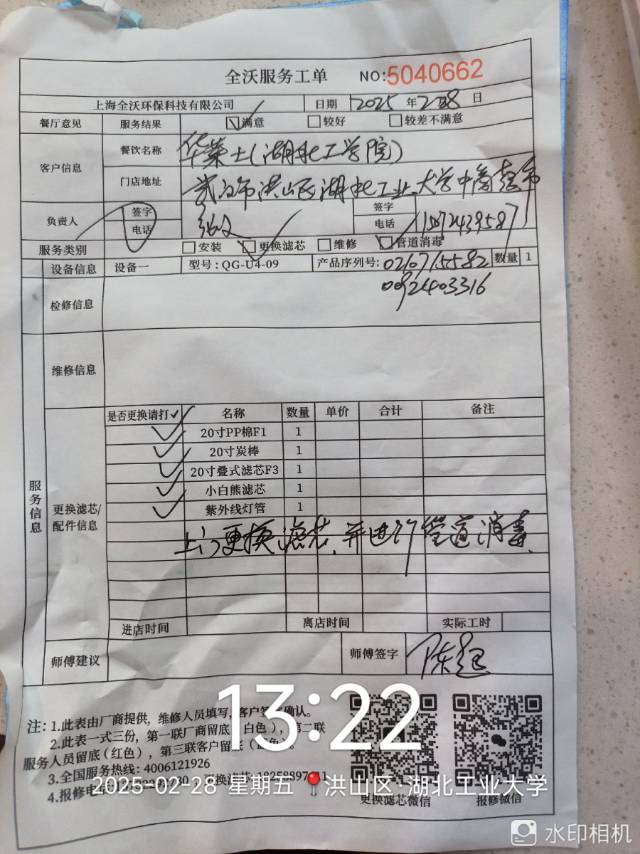 全沃服务工单 NO:5040662
上海全沃环保科技有限公司 日期 2025年2月28日
餐厅意见 服务结果 ☑满意 □较好 □较差不满意
客户信息 餐饮名称 华莱士(湖北工学院)
门店地址 武汉市洪山区湖北工业大学中商超市
负责人 签字 签字
电话 电话
服务类别 □安装 ☑更换滤芯 □维修 ☑管道消毒
设备信息 设备一 型号:QG-U4-09 产品序列号: 数量 1
0092403316
检修信息
维修信息
服务信息
更换滤芯/配件信息
是否更换请打✓ 名称 数量 单价 合计 备注
✓ 20寸PP棉F1 1
✓ 20寸炭棒 1
✓ 20寸叠式滤芯F3 1
✓ 小白熊滤芯 1
✓ 紫外线灯管 1
上门更换滤芯,并进行管道消毒.
进店时间 离店时间 实际工时
师傅建议 师傅签字
13:22
注:1.此表由厂商提供,维修人员填写,客户签字确认。
2.此表一式三份,第一联厂商留底(白色),第二联
服务人员留底(红色),第三联客户留底
3.全国服务热线:4006121926
4.报修电
更换滤芯微信 报修微信
2025-02-28 星期五 洪山区·湖北工业大学
水印相机